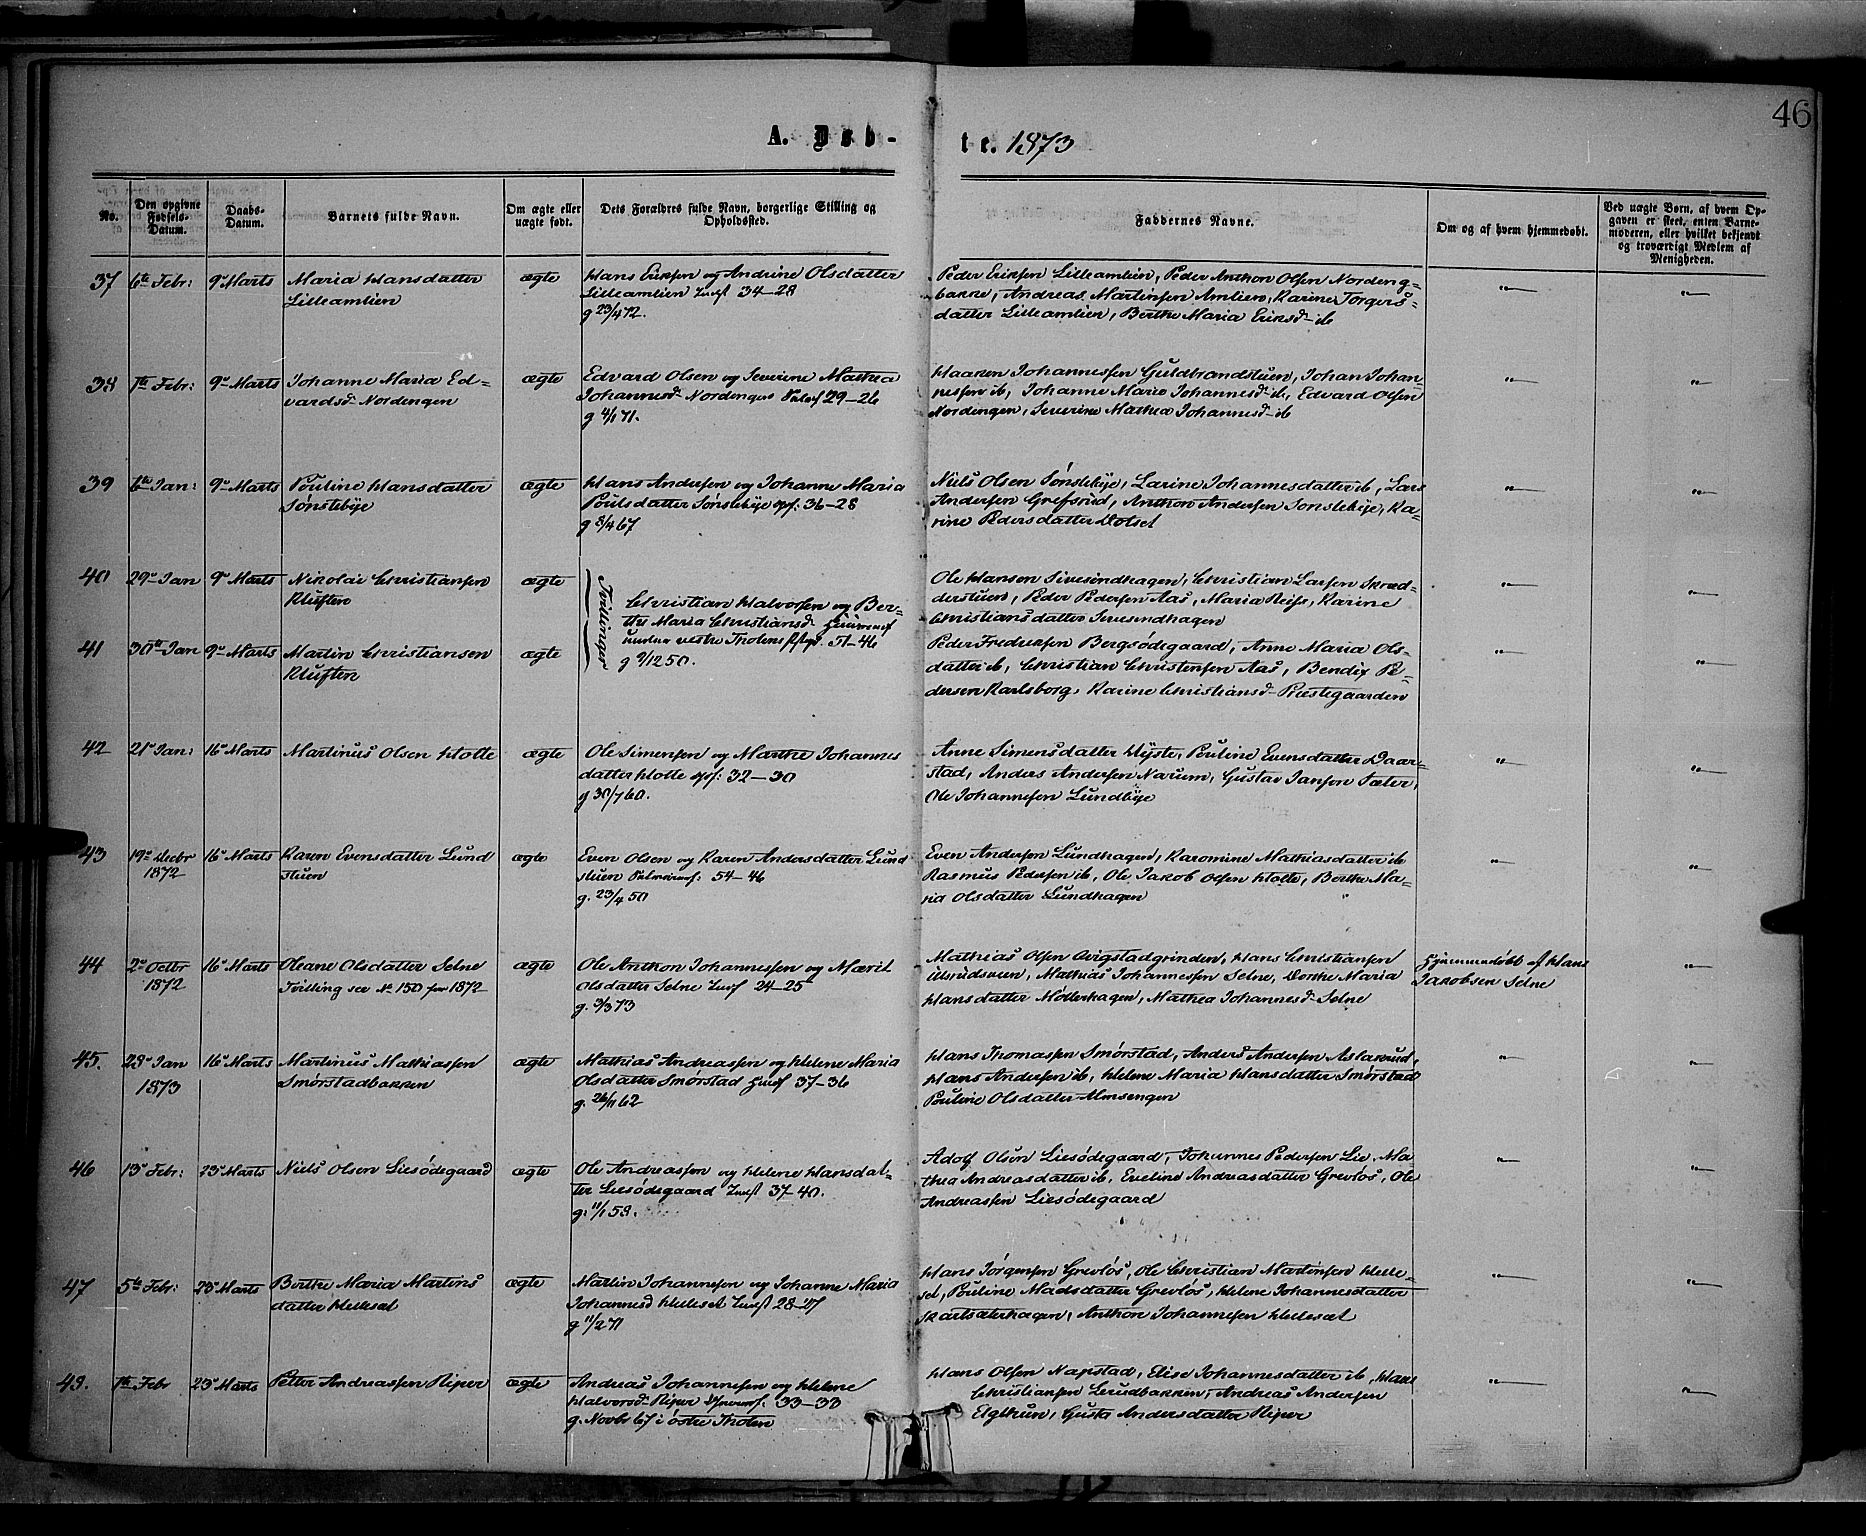 46
A. Døb-
te. 1873
No.
Den opgivne Fødsels-Datum.
Daabs-Datum.
Barnets fulde Navn.
Om ægte eller uægte født.
Dets Forældres fulde Navn, borgerlige Stilling og Opholdssted.
Faddernes Navne.
Om og af hvem hjemmedøbt.
Ved uægte Børn, af hvem Opgaven er skeet, enten Barnemoderen, eller hvilket bekjendt og troværdigt Medlem af Menigheden.
37 6te Febr: 9de Marts Maria Hansdatter
Lilleamlien
ægte
Hans Eriksen og Andrine Olsdatter
Lilleamlien Indst 34–28
g 23/4 72.
Peder Eriksen Lilleamlien, Peder Anthon Olsen Nordeng-
bakke, Andreas Martinsen Amlien, Karine Torgers-
datter Lilleamlien, Berthe Maria Eriksd ib
38 1te Febr: 9de Marts Johanne Maria Ed-
vardsd Nordengen
ægte
Edvard Olsen og Severine Mathea
Johannesd Nordengen 29–26
g 4/1 71.
Haaken Johannessen Guldbrandstuen, Johan Johan-
nessen ib, Johanne Marie Johannesd ib, Edvard Olsen
Nordengen, Severine Mathea Johannesd ib
39 6te Jan: 9de Marts Pouline Hansdatter
Sønsteby
ægte
Hans Andersen og Johanne Maria
Poulsdatter Sønsteby 36–28
g 8/4 67
Niels Olsen Sønsteby, Larine Johannesdatter ib, Lars
Andersen Grefsrud, Anthon Andersen Sønsteby, Ka-
rine Pedersdatter Dotset
40 29de Jan 9de Marts Nikolai Christiansen
Kluften
ægte
Tvillinger
Christian Halvorsen og Ber-
the Maria Christiansd
under vestre Thotens 51–46
g 9/12 50.
Ole Hansen Sivesindhagen, Christian Larsen Skræd-
derstuen, Peder Pedersen Aas, Maria Reiss, Karine
Christiansdatter Sivesindhagen
41 30te Jan 9de Marts Martin Christiansen
Kluften
ægte
Peder Fredriksen Bergsødegaard, Anne Maria Ols-
datter ib, Christian Christensen Aas, Bendix Pe-
dersen Karlsborg, Karine Christiansd Præstegaarden
42 21de Jan: 16de Marts Martinus Olsen Holte
ægte
Ole Simensen og Marthe Johannes
datter Holte 32–30
g 30/7 60.
Anne Simensdatter Hyste, Pouline Evensdatter Daar-
stad, Anders Andersen Narum, Gustav Jansen Sæter,
Ole Johannessen Lundbye
43 19de Decbr
1872
16de Marts Karen Evensdatter Lund
stuen
ægte
Even Olsen og Karen Andersdatter Lund
stuen 54–46
g. 23/4 50
Even Andersen Lundhagen, Karomine Mathiasdatter ib
Rasmus Pedersen ib, Ole Jakob Olsen Holte, Berthe Ma-
ria Olsdatter Lundhagen
44 2de Octbr
1872
16de Marts Oleane Olsdatter Selne
Tvilling see No 150 for 1872
ægte
Ole Anthon Johannessen og Mærit
Olsdatter Selne Indst 24–25
g. 9/3 73
Mathias Olsen Qvigstadgrinden, Hans Christiansen
Mathias Johannessen Selne, Dorthe Maria
Hansdatter Møllerhagen, Mathea Johannesd Selne
Hjemmedøbt af Hans
Jakobsen Selne
45. 28de Jan
1873
16de Marts Martinus Mathiassen
Smørstadbakken
ægte
Mathias Andreassen og Helene Maria
Olsdatter Smørstad 37–36
g. 26/11 62
Hans Thomassen Smørstad, Anders Andersen Aslaksrud,
Hans Andersen ib, Helene Maria Hansdatter Smørstad
Pouline Olsdatter Almsengen
46 13de Febr: 23de Marts Niels Olsen Liesødegaard
ægte
Ole Andreassen og Helene Hansdat-
ter Liesødegaard Indst 37–40.
g. 11/1 59.
Adolf Olsen Liesødegaard, Johannes Pedersen Lie, Ma
thea Andreasdatter ib, Eveline Andreasdatter Grevløs, Ole
Andreassen Liesødegaard
47 5te Febr: 23de Marts Berthe Maria Martins
datter Hilleset
ægte
Martin Johannessen og Johanne Maria
Johannesd Hilleset Indst 28–27
g 11/2 71
Hans Jørgensen Grevløs, Ole Christian Martinsen Hille-
set, Pouline Madsdatter Grevløs, Helene Johannesdatter
Skartsæterhagen, Anthon Johannessen Hillesæt
48. 1te Febr 23de Marts Petter Andreassen Riper
ægte
Andreas Johannessen og Helene
Halvorsd Riper 33–33
g. Novbr 67 i østre Thoten
Hans Olsen Napstad, Elise Johannesdatter ib, Hans
Christiansen Lerudbakken, Andreas Andersen
Elgthun, Gusta Andersdatter Riper